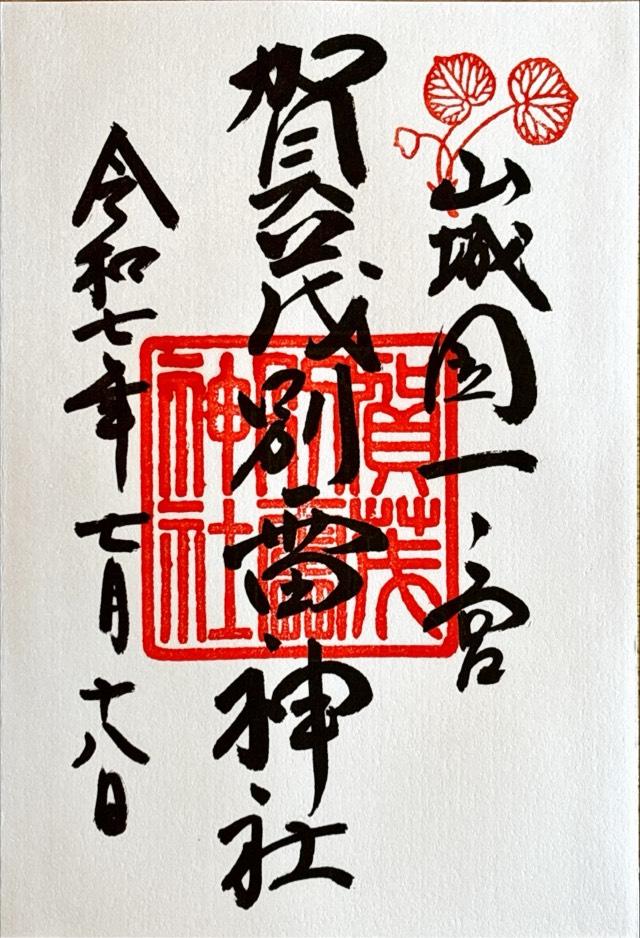 山城国一ノ宮
賀茂別雷神社
令和七年七月十八日
賀茂
別雷
神社